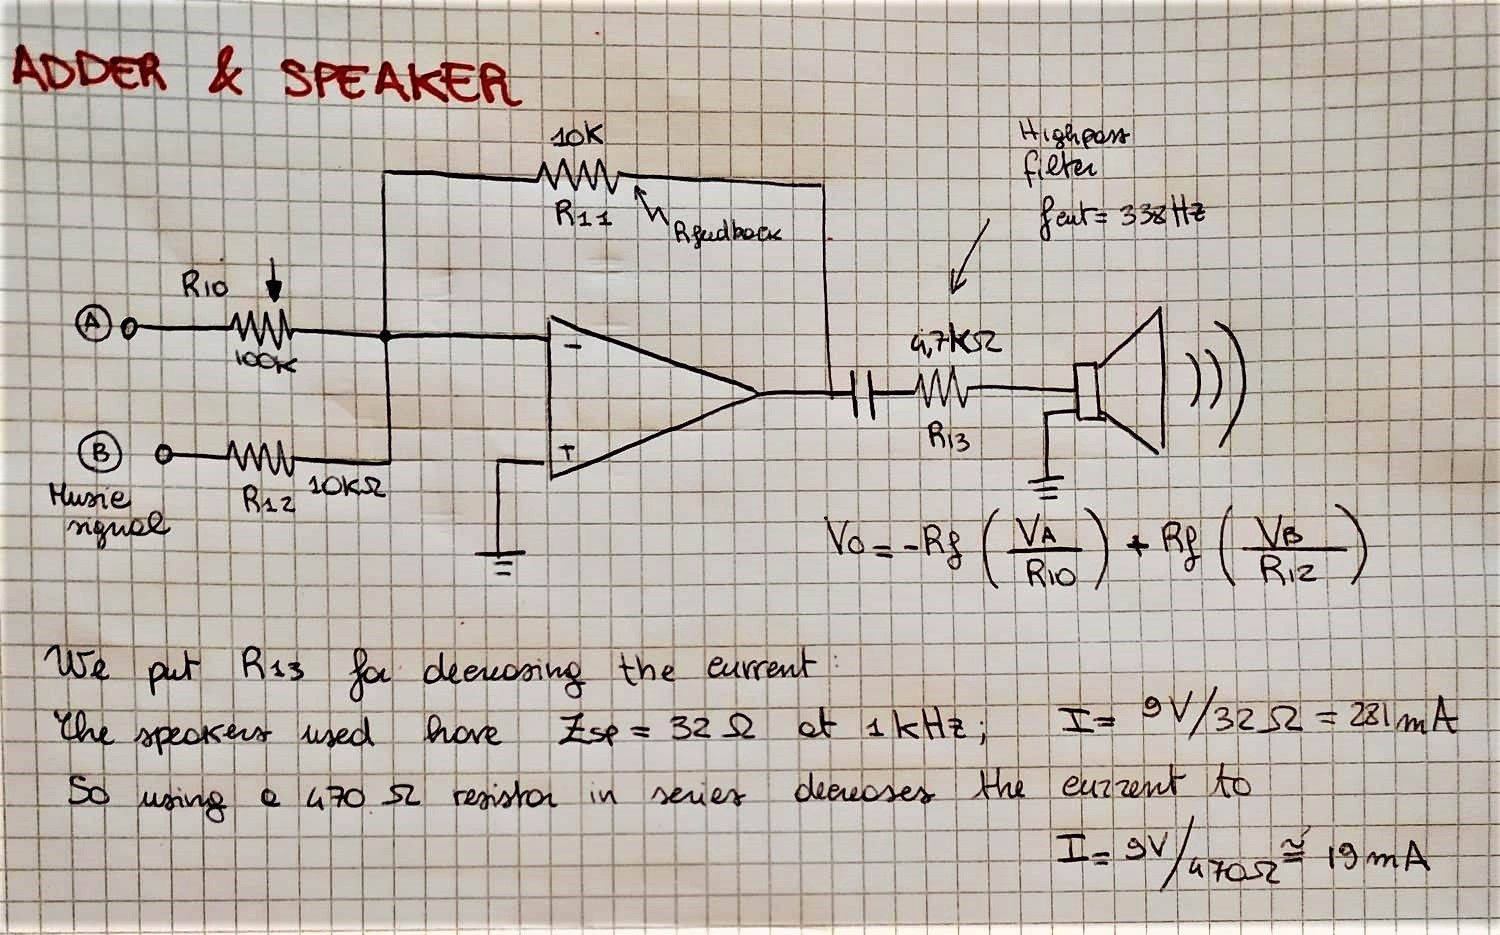 ADDER & SPEAKER
10K
R11
Rfeedback
Highpass
filter
fcut = 338 Hz
R10
A
100K
-
+
4,7KΩ
R13
B
R12
10KΩ
Music
signal
Vo = -Rf (VA/R10) + Rf (VB/R12)
We put R13 for decreasing the current:
The speakers used have Zsp = 32 Ω at 1 kHz; I = 9V/32Ω = 281 mA
So using a 470 Ω resistor in series decreases the current to
I = 9V/470Ω ≅ 19 mA